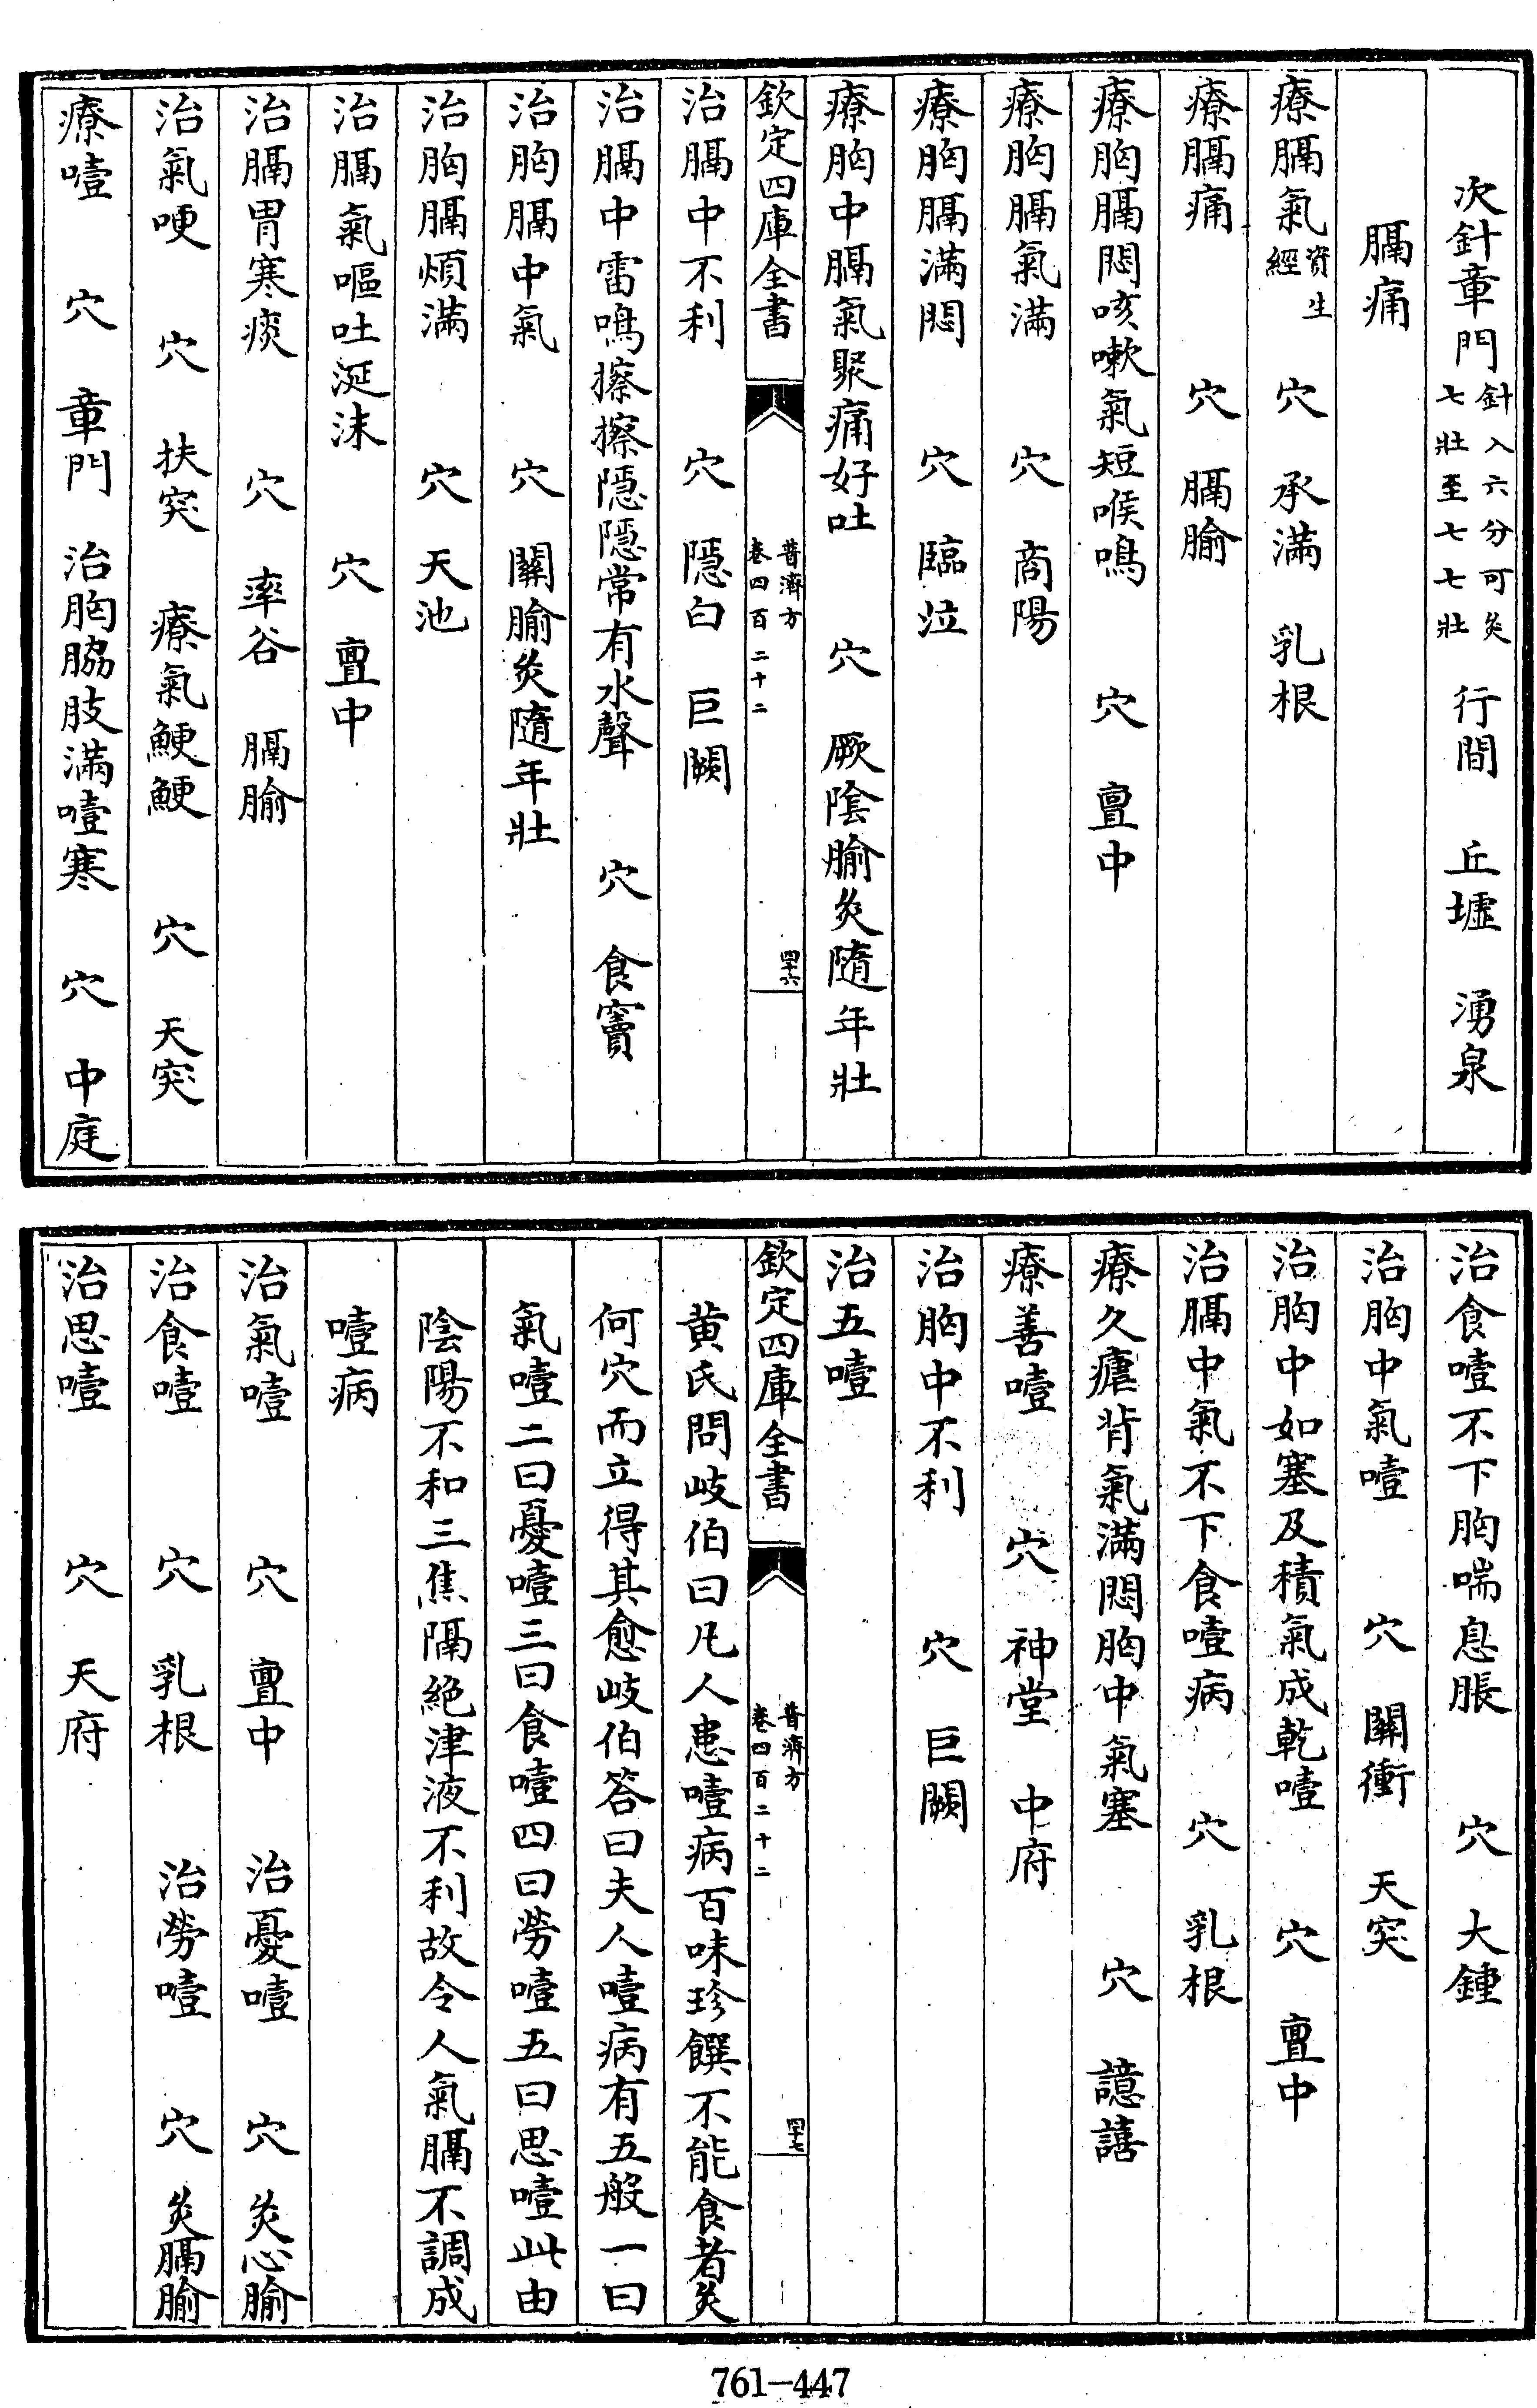 次針章門針入六分可灸七壯至七七壯　行間　丘墟　湧泉
膈痛
療膈氣資生經　穴　承滿　乳根
療膈痛　穴　膈腧
療胸膈悶咳嗽氣短喉鳴　穴　亶中
療胸膈氣滿　穴　商陽
療胸膈滿悶　穴　臨泣
療胸中膈氣聚痛好吐　穴　厥陰腧灸隨年壯
欽定四庫全書　普濟方卷四百二十二　四十六
治膈中不利　穴　隠白　巨闕
治膈中雷鳴擦擦隠隠常有水聲　穴　食竇
治胸膈中氣　穴　關腧灸隨年壯
治胸膈煩滿　穴　天池
治膈氣嘔吐涎沫　穴　亶中
治膈胃寒痰　穴　率谷　膈腧
治氣哽　穴　扶突　療氣鯁鯁　穴　天突
療噎　穴　章門　治胸脇肢滿噎寒　穴　中庭
治食噎不下胸喘息脹　穴　大鍾
治胸中氣噎　穴　關衝　天突
治胸中如塞及積氣成乾噎　穴　亶中
治膈中氣不下食噎病　穴　乳根
療久瘧背氣滿悶胸中氣塞　穴　譩譆
療善噎　穴　神堂　中府
治胸中不利　穴　巨闕
治五噎
欽定四庫全書　普濟方卷四百二十二　四十七
黃氏問岐伯曰凡人患噎病百味珍饌不能食者灸
何穴而立得其愈岐伯答曰夫人噎病有五般一曰
氣噎二曰憂噎三曰食噎四曰勞噎五曰思噎此由
陰陽不和三焦隔絶津液不利故令人氣膈不調成
噎病
治氣噎　穴　亶中　治憂噎　穴　灸心腧
治食噎　穴　乳根　治勞噎　穴　灸膈腧
治思噎　穴　天府
761-447